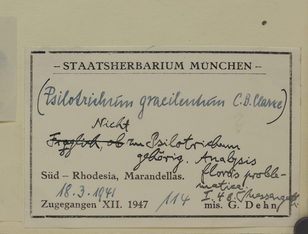 – STAATSHERBARIUM MÜNCHEN –
(Psilotrichum gracilentum C.B. Clarke)
Nicht
Fraglich, ob zu Psilotrichum
gehörig. Analysis
Süd – Rhodesia, Marandellas. floris proble-
matica.
18.3.1941 114 I. 485
Zugegangen XII. 1947 mis. G. Dehn